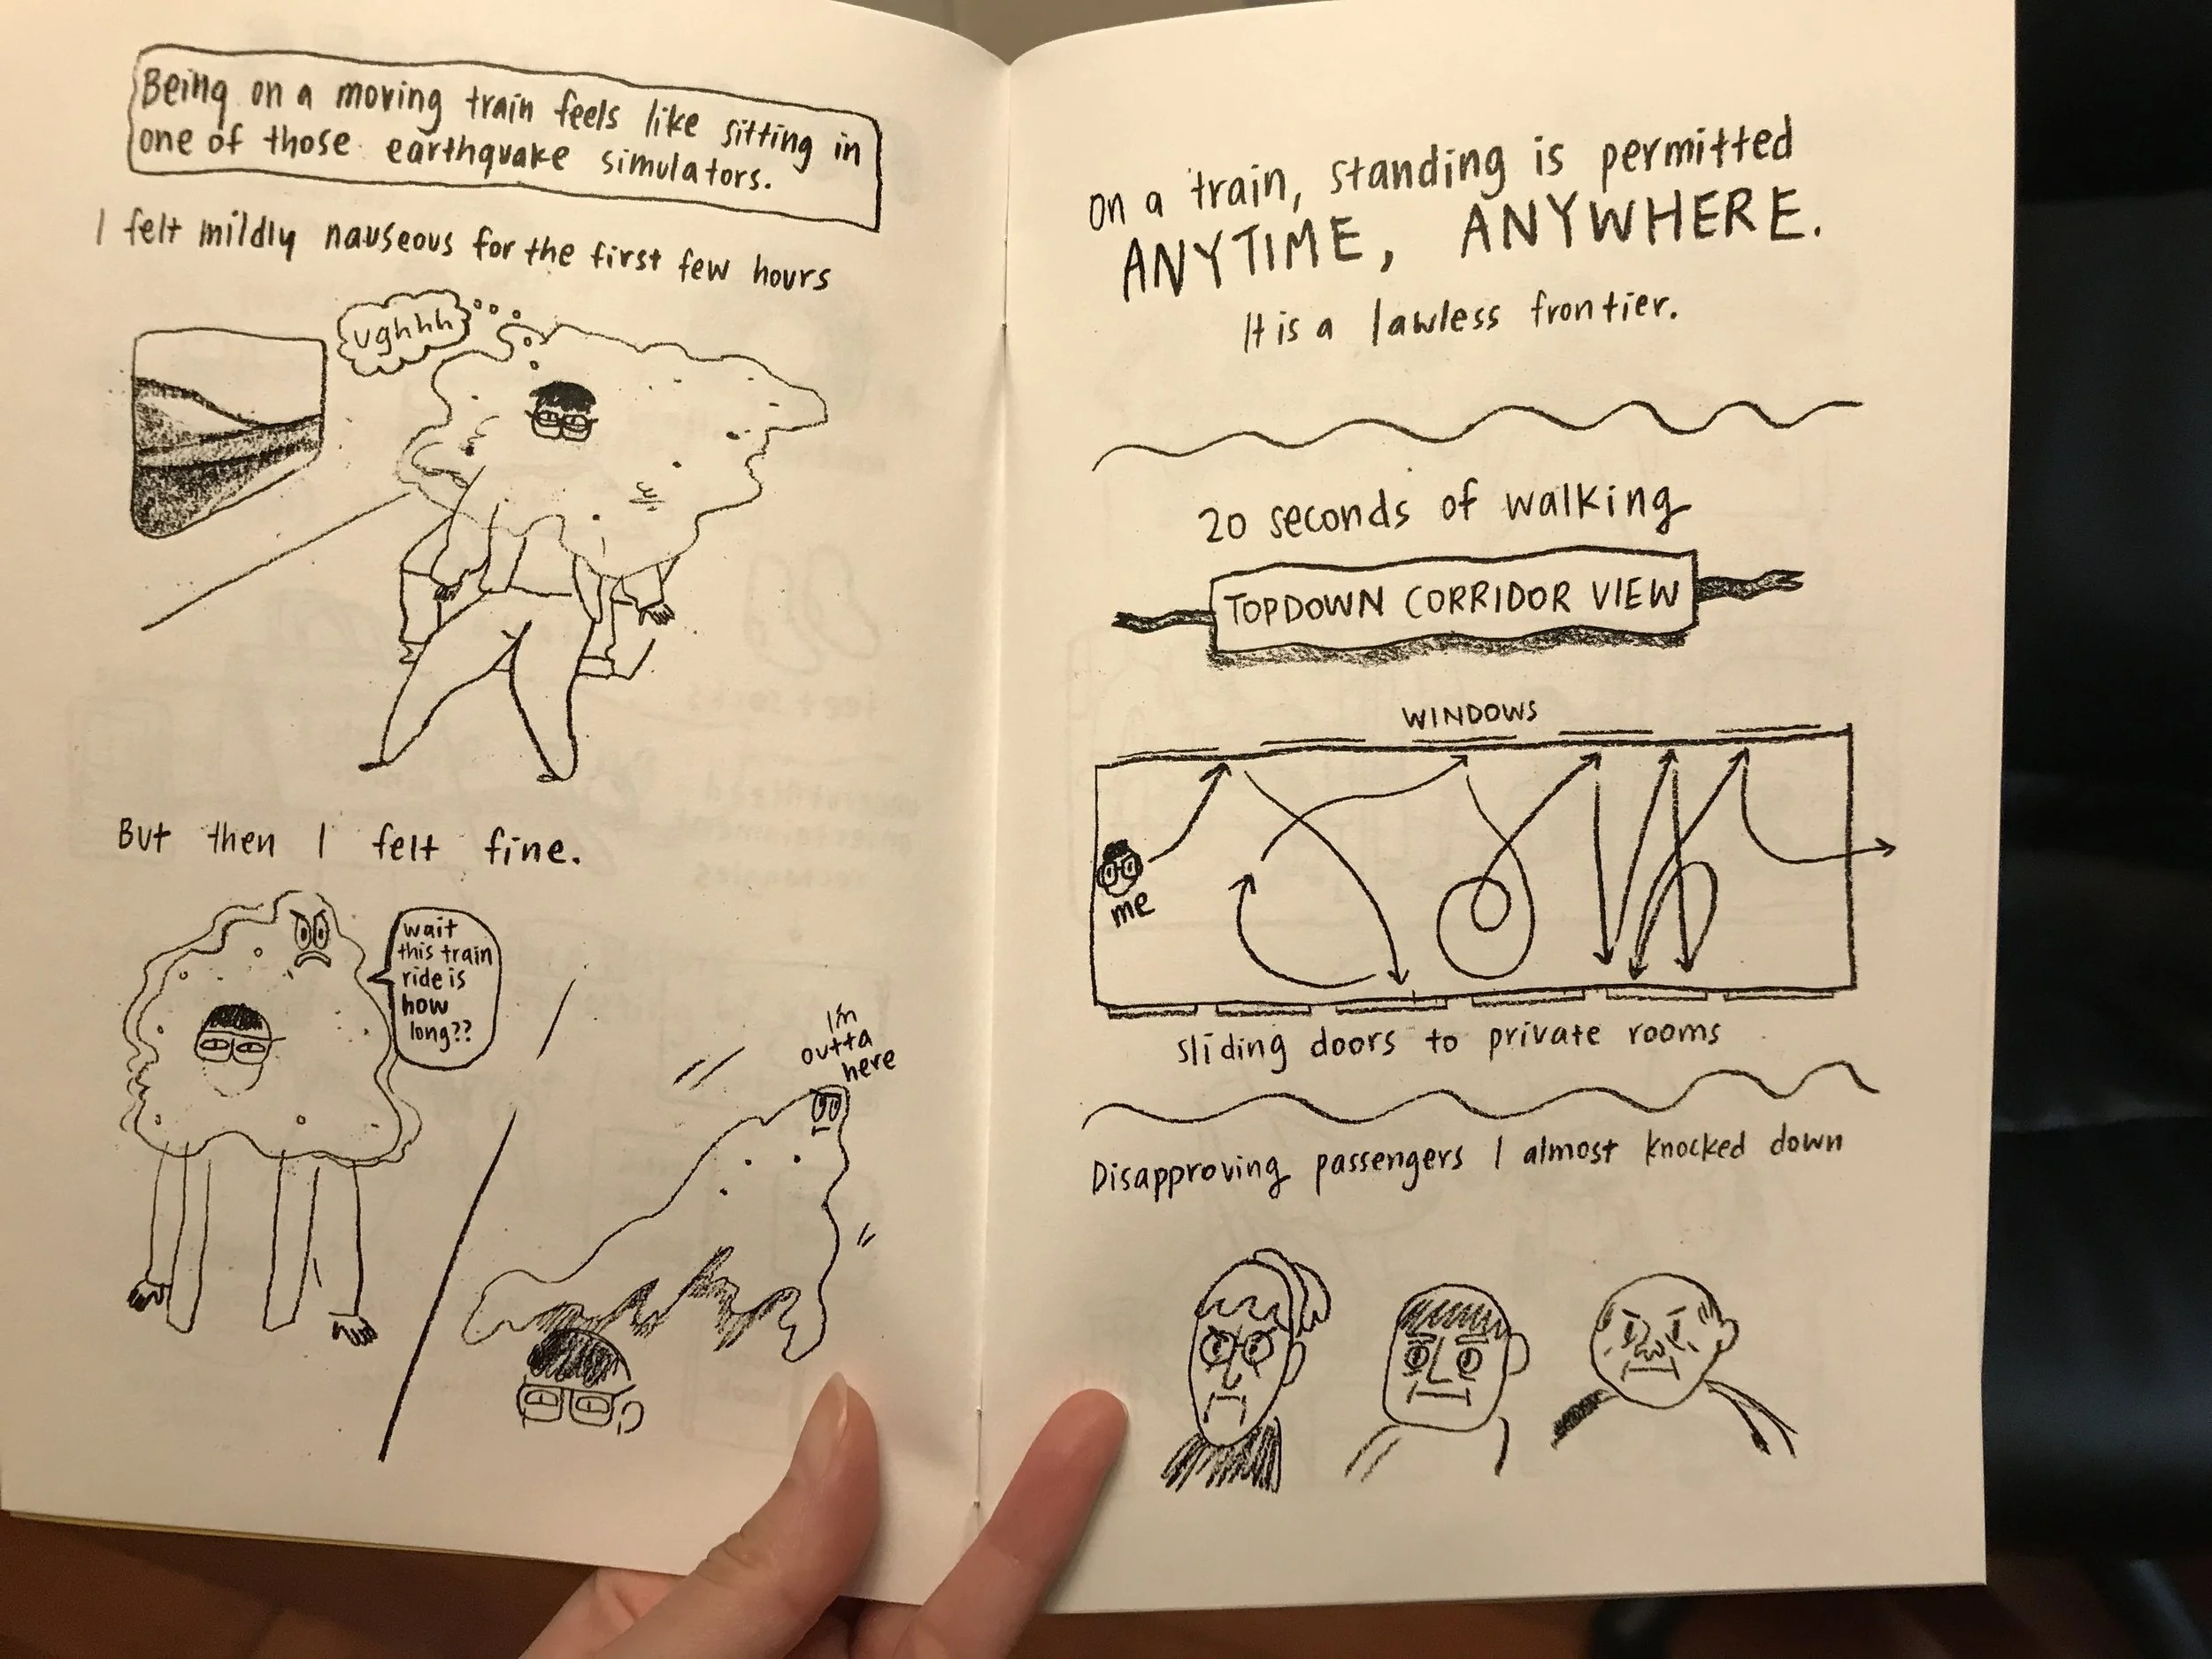 Being on a moving train feels like sitting in
one of those earthquake simulators.
I felt mildly nauseous for the first few hours
ughhh
But then I felt fine.
wait
this train
ride is
how
long??
I'm
outta
here
On a train, standing is permitted
ANYTIME, ANYWHERE.
It is a lawless frontier.
20 seconds of walking
TOPDOWN CORRIDOR VIEW
WINDOWS
me
sliding doors to private rooms
Disapproving passengers I almost knocked down